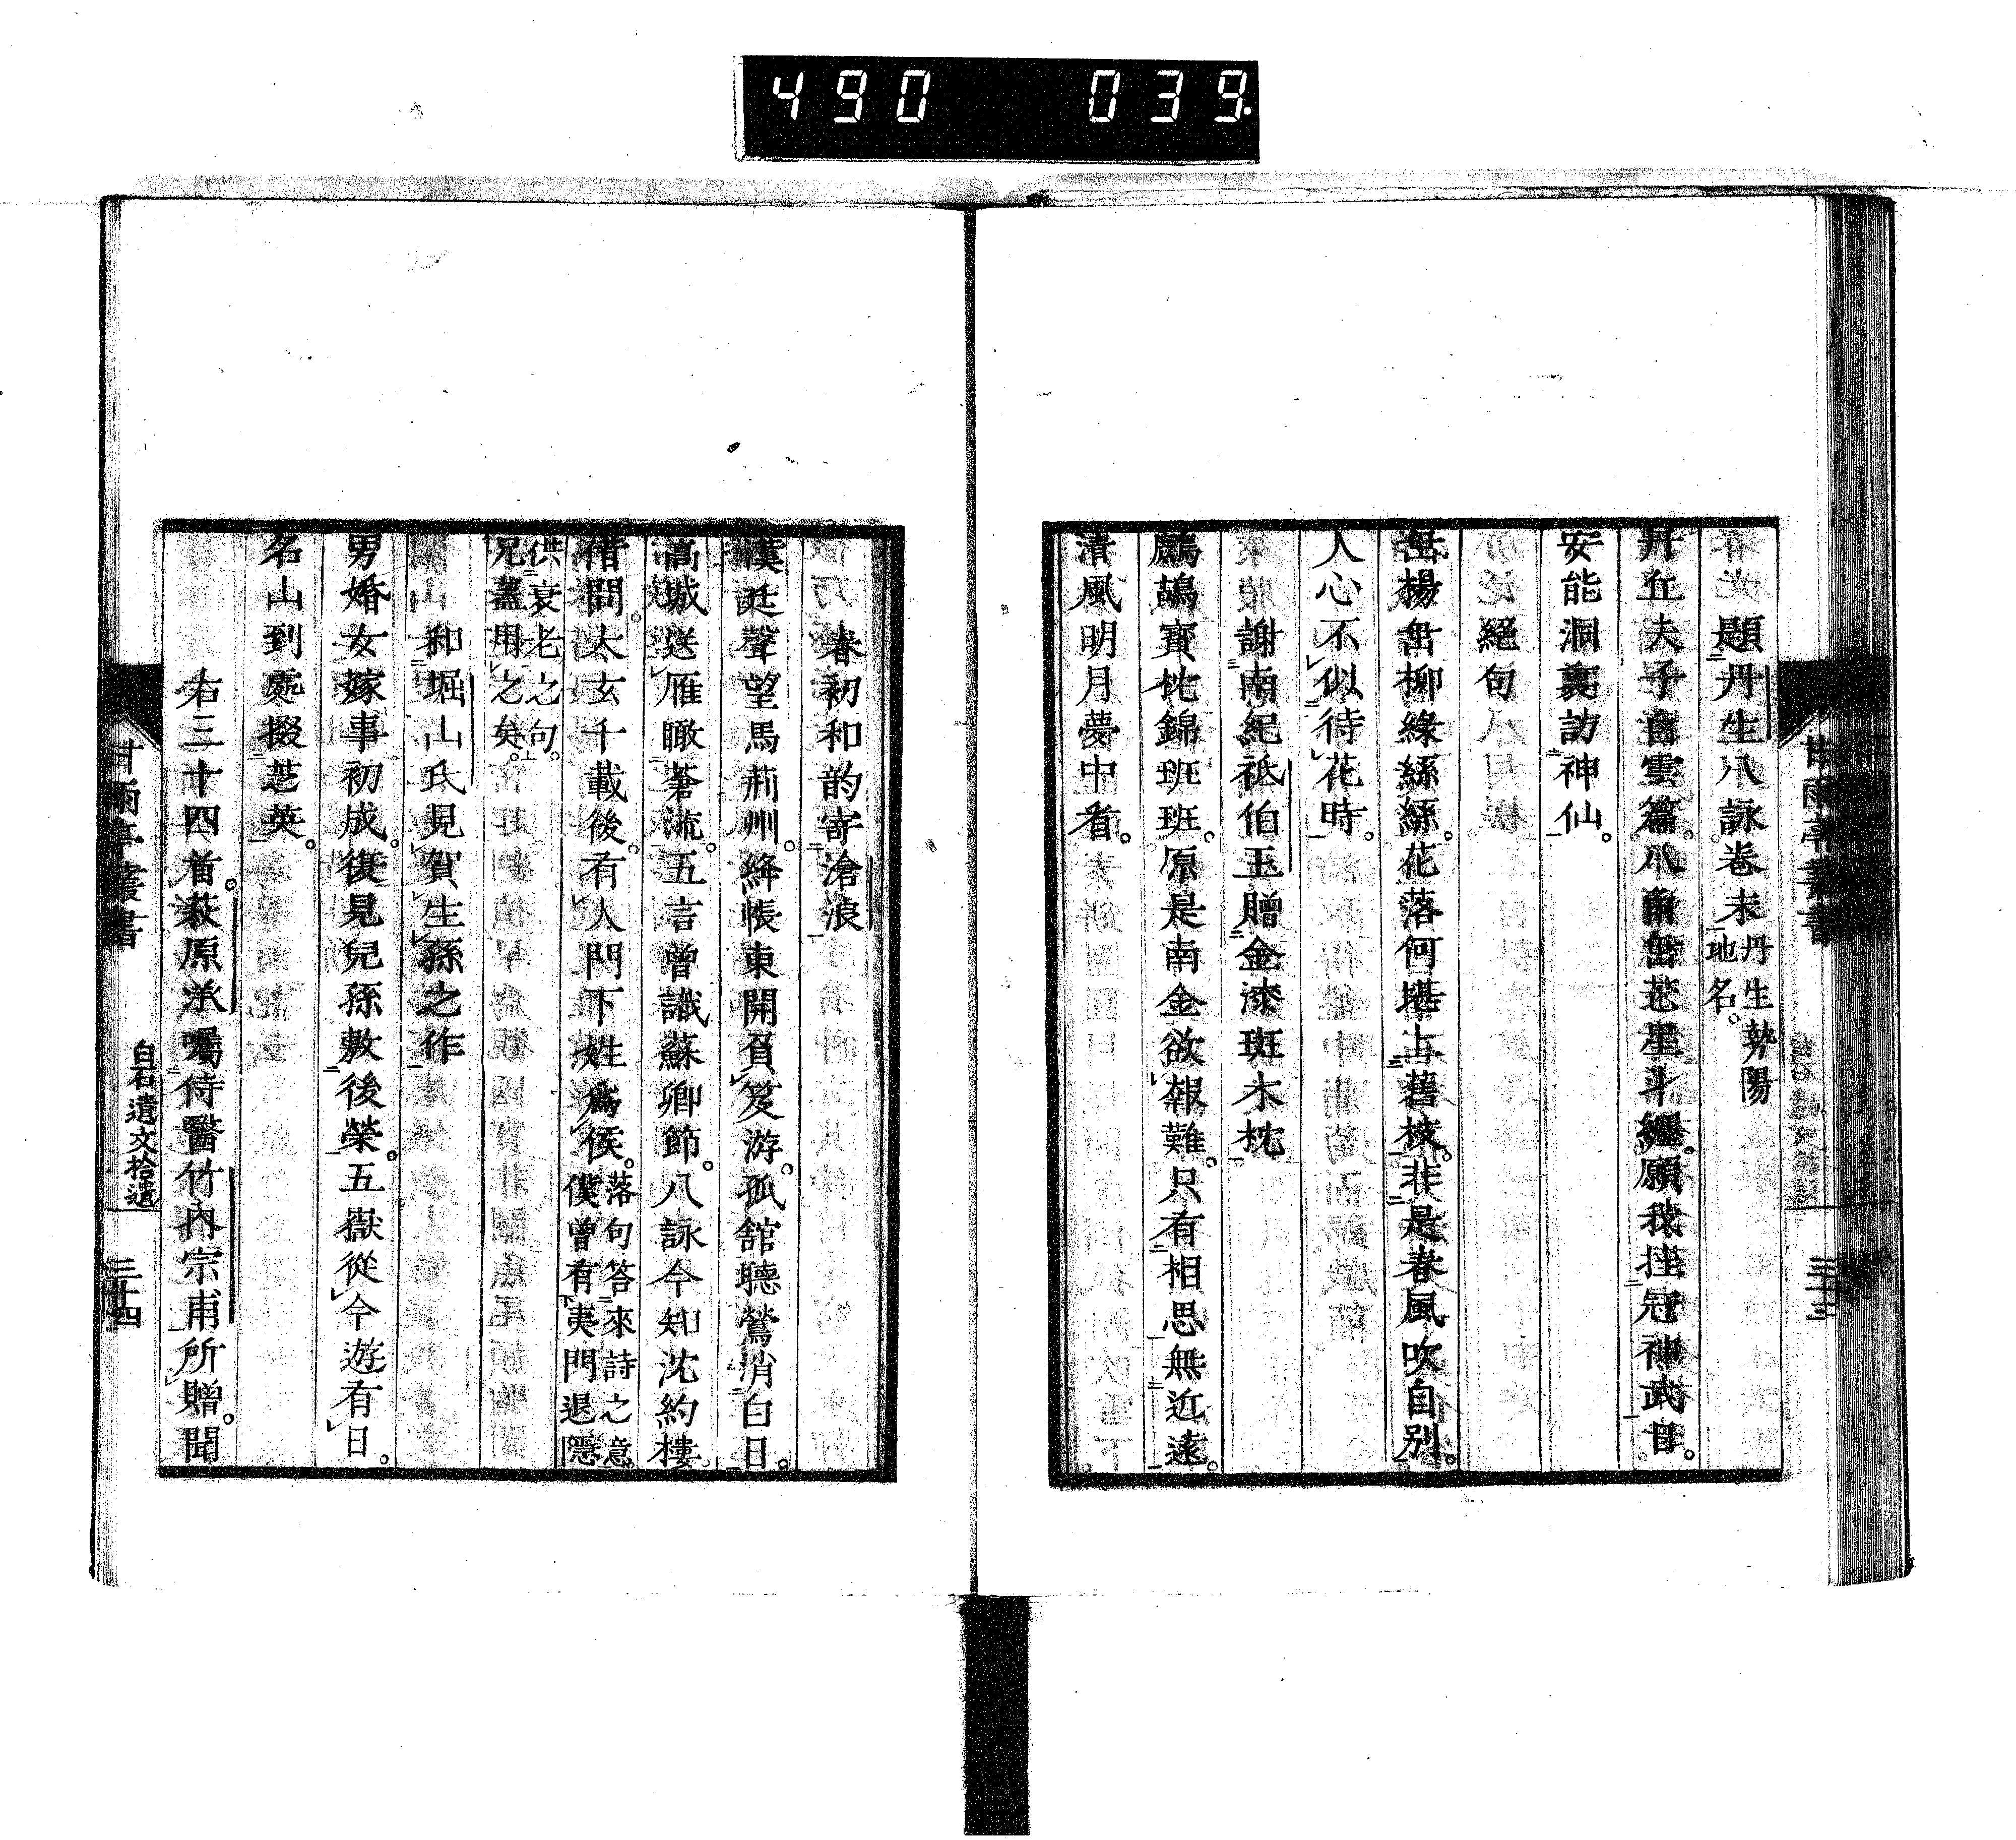 490 039
題丹生八詠卷末 丹生勢陽地名。
丹丘夫子白雲篇。八首留芒星斗纏。願我挂冠神武日。
安能洞裏訪神仙。
絕句
缶楊缶柳綠絲絲。花落何堪上舊枝。非是春風吹自別。
人心不似待花時。
謝南紀祇伯玉贈金漆斑木枕
鷓鴣寶枕錦班班。原是南金欲報難。只有相思無近遠。
清風明月夢中看。
甘雨亭叢書
三十三
春初和韵寄滄浪
漢廷聲望馬荊州。絳帳東開負笈游。孤館聽鶯消白日。
高城送雁瞰蒼流。五言曾識蘇卿節。八詠今知沈約樓。
借問。太玄千載後。有人門下姓為侯。落句答來詩之意。僕曾有夷門退隱
供衰老之句。兄蓋用之矣。
和堀山氏見賀生孫之作
男婚女嫁事初成。復見兒孫敷後榮。五嶽從今遊有日。
名山到處掇芝英。
右三十四首。萩原承囑侍醫竹內宗甫所贈。聞
甘雨亭叢書
白石遺文拾遺
三十四